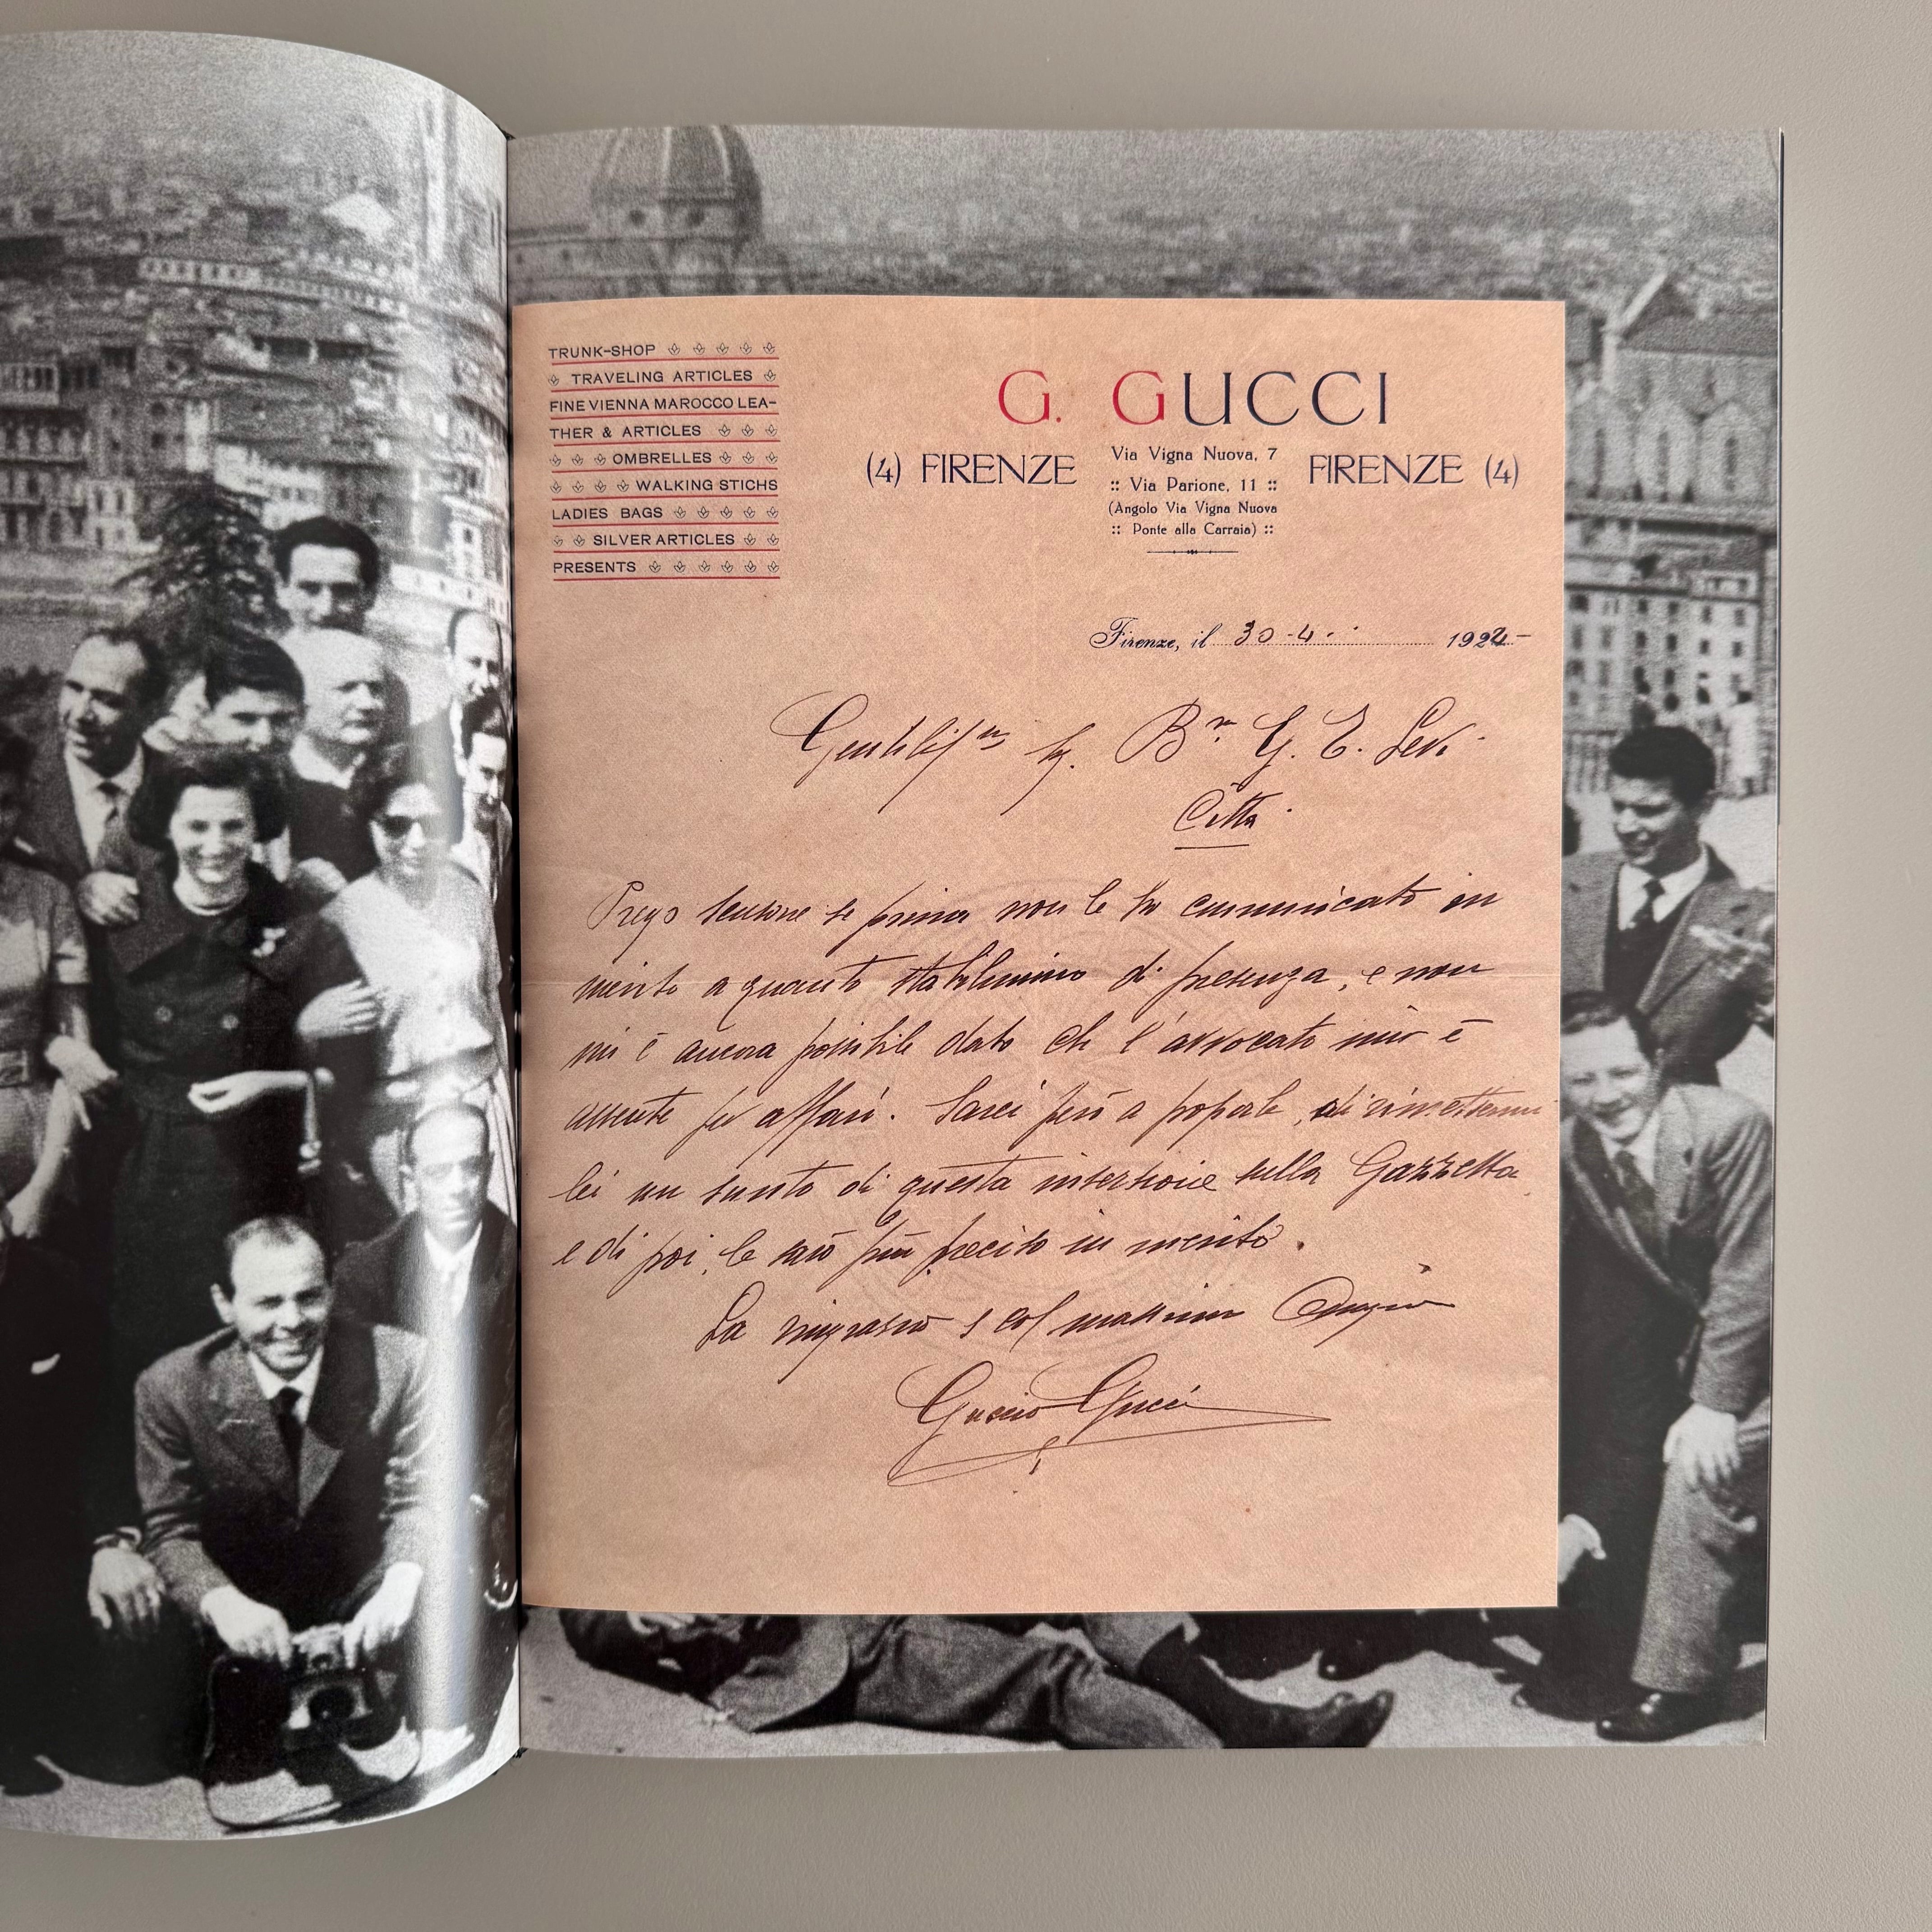 TRUNK-SHOP
TRAVELING ARTICLES
FINE VIENNA MAROCCO LEA-
THER & ARTICLES
OMBRELLES
WALKING STICHS
LADIES BAGS
SILVER ARTICLES
PRESENTS
G. GUCCI
(4) FIRENZE
Via Vigna Nuova, 7
:: Via Parione, 11 ::
(Angolo Via Vigna Nuova
:: Ponte alla Carraia) ::
FIRENZE (4)
Firenze, il 30-4- 192
G. Levi
Città
Prego se prima non le ho comunicato in
merito a quanto stabilimmo di presenza, e non
mi è ancora possibile dato che l'avvocato mio è
assente per affari. Sarei però a pregarla, di rimettermi
lei un sunto di questa inserzione sulla Gazzetta
e di poi, le sarò più preciso in merito.
La ringrazio col massimo
Guccio Gucci